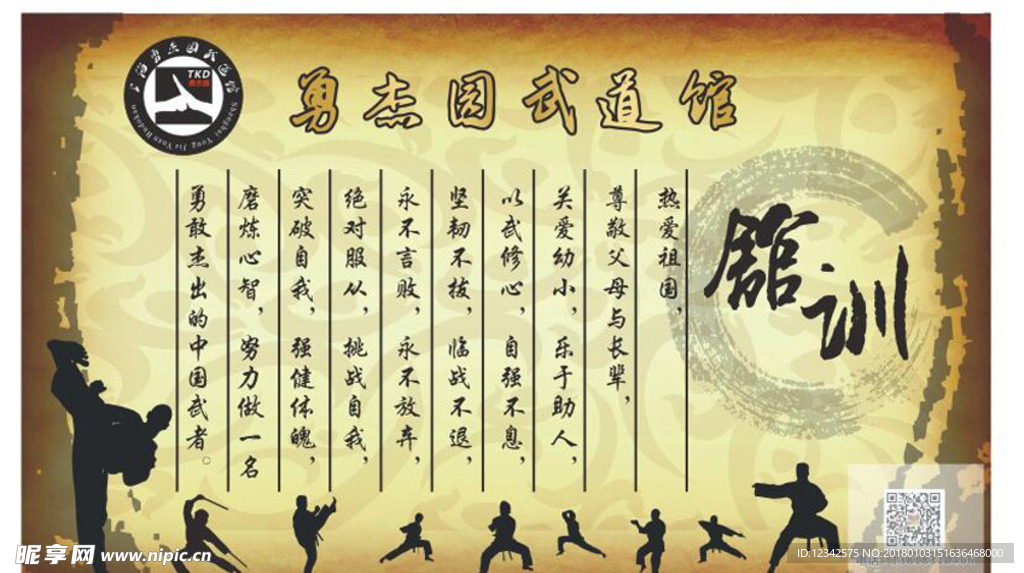 勇杰园武道馆
上海勇杰园武道馆
TKD
Shanghai Yong Jie Yuan Budokan
馆训
热爱祖国，
尊敬父母与长辈，
关爱幼小，乐于助人，
以武修心，自强不息，
坚韧不拔，临战不退，
永不言败，永不放弃，
绝对服从，挑战自我，
突破自我，强健体魄，
磨炼心智，努力做一名
勇敢杰出的中国武者。
昵享网 www.nipic.cn
ID:12342575 NO:20180103151636468000